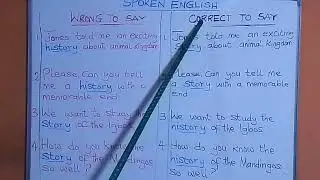 SPOKEN ENGLISH
WRONG TO SAY
1 Jones told me an exciting
history about animal kingdom
2 Please. Can you tell
me a history with a
memorable end
3 We want to study the
Story of the Igbos
4 How do you know the
Story of the Mandingos
So well?
CORRECT TO SAY
1 Jones told me an exciting
Story about animal kingdom
2 Please. Can you tell me
a Story with a memorable
end
3 We want to study the
history of the Igbos
4 How do you know the
history of the Mandingos
So well?